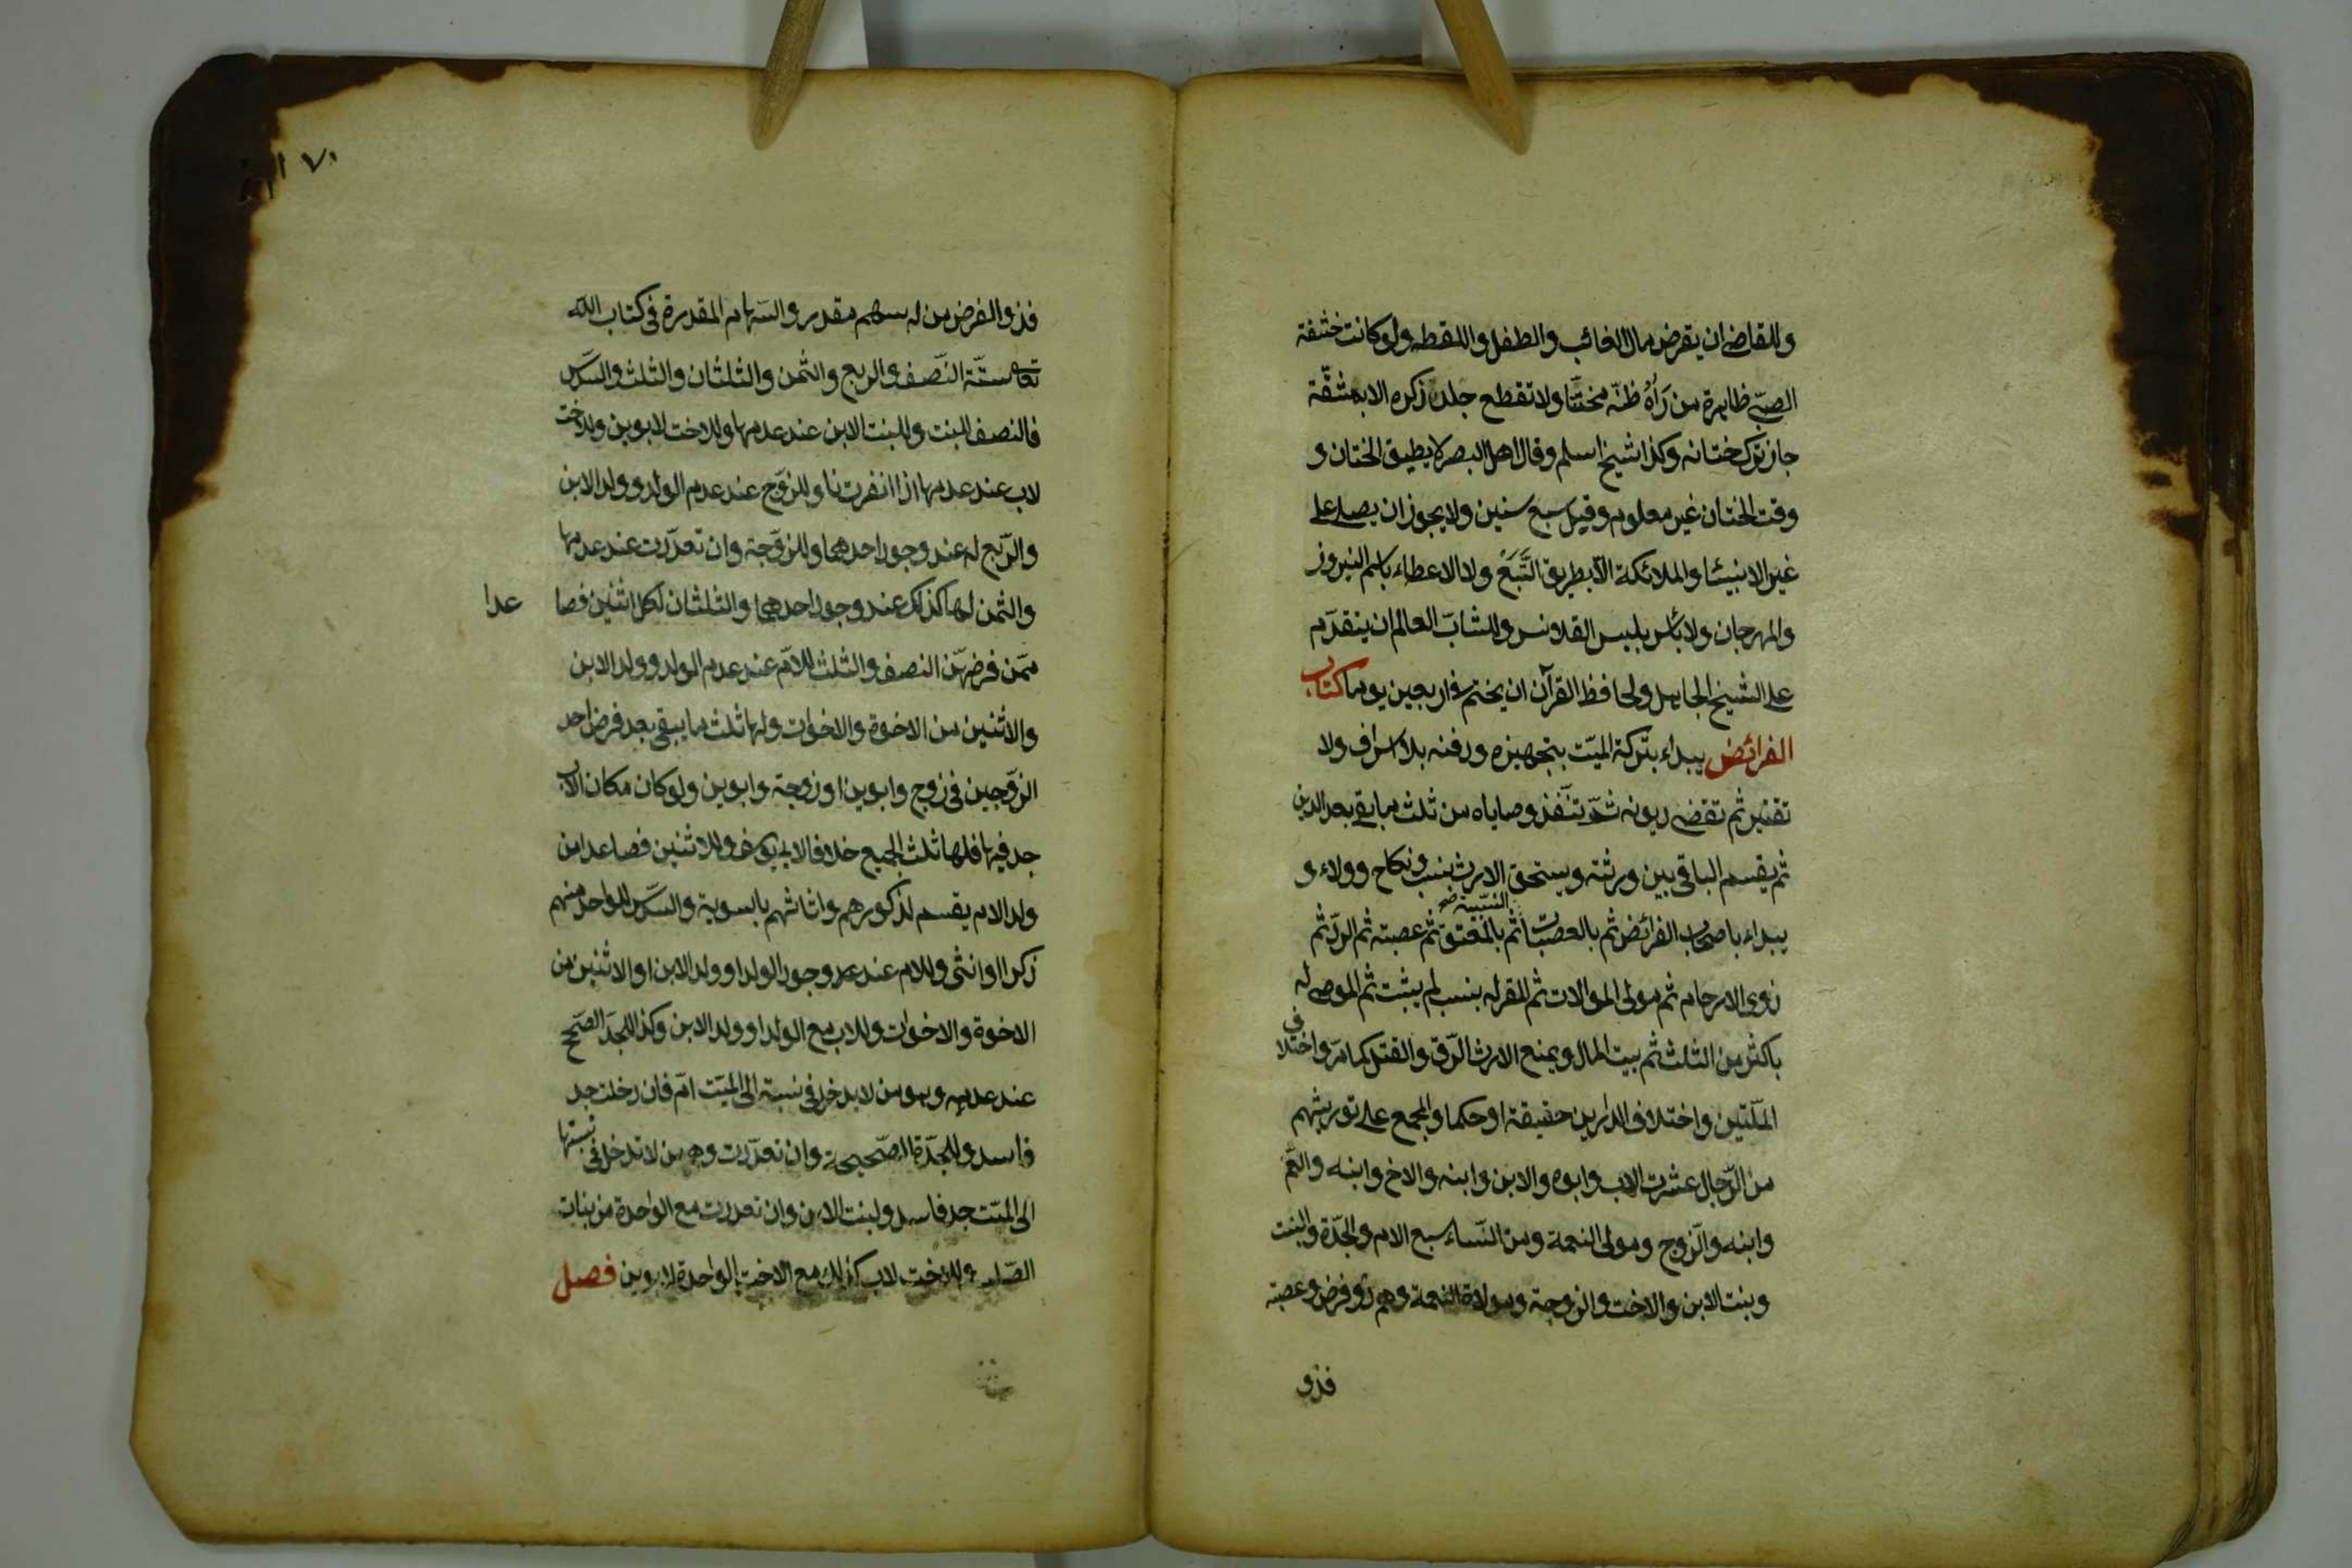 وللقاضي ان يقرض مال الغائب والطفل واللقطه ولو كانت حشفة
الصبي ظاهرة من رَاٰهُ ظنّه مختنّا ولا تقطع جلدة ذكره الا بمشقّة
جاز ترك ختانه وكذا شيخ اسلم وقال اهل البصر لا يطيق الختان و
وقت الختان غير معلوم وقيل سبع سنين ولا يجوز ان يصلى على
غير الانبيئا والملائكة الّا بطريق التَّبَعْ ولا الاعطاء باسم النيروز
والمهرجان ولا بأس بلبس القلانس وللشابّ العالم ان يتقدّم
على الشيخ الجاهل ولحافظ القرآن ان يختم في اربعين يوما كتاب
الفرائض يبداء بتركة الميّت بتجهيزه ودفنه بلا اسراف ولا
تقتير ثم تقضى ديونه ثمّ تنّفذ وصاياه من ثلث ما بقي بعد الدين
ثم يقسم الباقي بين ورثته ويستحق الارث بنسب ونكاح وولاء و
يبداء باصحاب الفرائض ثم بالعصبات النسبية صح ثم بالمعتق ثم عصبته ثم الردّ ثم
ذوى الارحام ثم مولى الموالات ثم المقر له بنسب لم يثبت ثم الموصى له
باكثر من الثلث ثم بيت المال ويمنع الارث الرّق والقتل كما مرّ واختلاف
الملّتين واختلاف الدارين حقيقة او حكما والمجمع على توريثهم
من الرّجال عشرت الاب وابوه والابن وابنه والاخ وابنه والعّم
وابنه والزّوج ومولى النعمة ومن النّساء سبع الام والجدّة والبنت
وبنت الابن والاخت والزوجة ومولاة النعمة وهم ذو فرض وعصبة
فذو
١٧٠
فذو الفرض من له سهم مقدر والسّهام المقدرة فى كتاب اللّه
تعالى ستّة النّصف والربع والثّمن والثلثان والثلث والسّدس
فالنصف للبنت وللبنت الابن عند عدمها وللاخت لابوين وللاخت
لاب عند عدمها اذا انفردن وللزّوج عند عدم الولد وولد الابن
والرّبع له عند وجود احدهما وللزّوجة وان تعدّدت عند عدمها
والثمن لها كذلك عند وجود احدهما والثلثان لكل اثنين فصا عدا
ممّن فرضهّن النصف والثلث للامّ عند عدم الولد وولد الابن
والاثنين من الاخوة والاخوات ولها ثلث ما يبقى بعد فرض احد
الزوّجين فى زوج وابوين او زوجة وابوين ولو كان مكان الاب
جد فيها فلها ثلث الجميع خلافا لابى يوسف وللاثنين فصاعدا من
ولد الام يقسم لذكورهم واناثهم بالسوية والسّدس للواحد منهم
ذكرا او انثى وللام عند وجود الولد او ولد الابن او الاثنين من
الاخوة والاخوات وللاب مع الولد او ولد الابن وكذا للجدّ الصّحح
عند عدمه وهو من لا يدخل فى نسبة الى الميّت امّ فان دخلت جد
فاسد وللجدّة الصّحيحة وان تعدّدت وهى من لا تدخل فى نسبتها
الى الميّت جد فاسد ولبنت الابن وان تعددت مع الواحدة من بنات
الصّلب وللاخت لاب كذلك مع الاخت الواحدة لابوين فصل